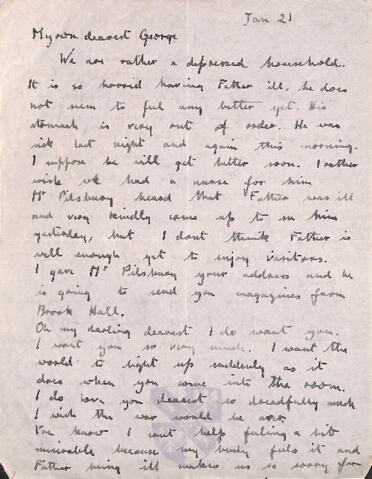 Jan 21
My own dearest George
We are rather a depressed household.
It is so horrid having Father ill. he does
not seem to feel any better yet. His
stomach is very out of order. He was
sick last night and again this morning.
I suppose he will get better soon. I rather
wish we had a nurse for him
Mr Pilsbury heard that Father was ill
and very kindly came up to see him
yesterday, but I dont think Father is
well enough yet to enjoy visitors.
I gave Mr Pilsbury your address and he
is going to send you magazines from
Brook Hall.
Oh my darling dearest I do want you.
I want you so very much. I want the
world to light up suddenly as it
does when you come into the room.
I do love you dearest so dreadfully much
I wish the war would be over.
You know I cant help feeling a bit
miserable because my body feels it and
Father being ill makes us so sorry for